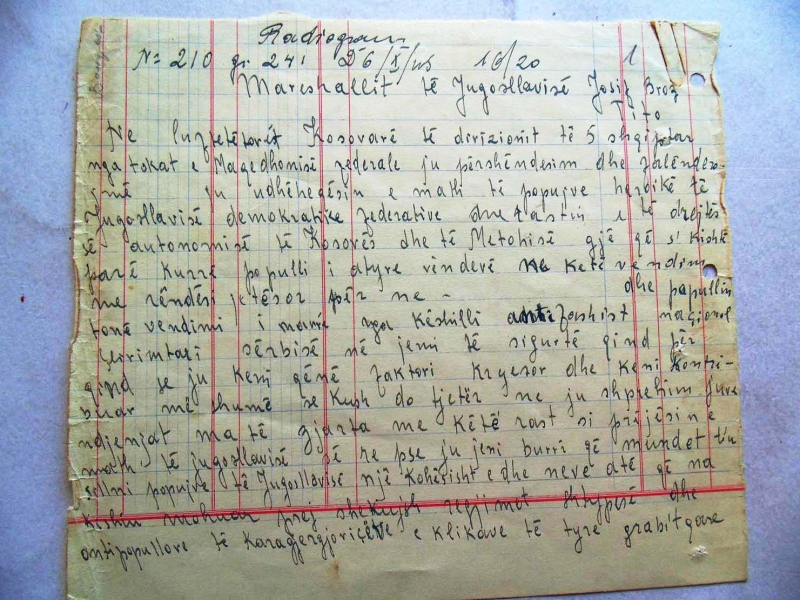 Radiogram
№ 210 gr 241 26/X/45 16/20 1
Mareshallit të Jugosllavisë Josif Broz
Tito
Ne luftëtarët Kosovarë të divizionit të 5 shqiptar
nga tokat e Maqedhonisë federale ju përshëndesim dhe falënder-
ojmë ju udhëheqësin e math të popujve heroikë të
Jugosllavisë demokratike federative dhe e të drejtës
së autonomisë të Kosovës dhe të Metohisë gjë që s'kishte
parë kurrë populli i atyre vendeve ketë vendim
me rëndësi jetësor për ne - dhe popullin
tonë vendimi i marrë nga këshilli antifashist nacional
çlirimtari sërbisë në jemi të sigurtë qind për
qind se ju keni qënë faktori kryesor dhe keni kontri-
buar më shumë se kush do tjetër ne ju shprehim juve
ndjenjat ma të gjarta me këtë rast si prijësin e
math të jugosllavisë së re pse ju jeni burri që mundet t'u
sillni popujve të Jugosllavisë një kohësisht edhe neve atë që na
kishin mohuar prej shekujsh regjimet shtypëse dhe
antipopullore të Karagjergjoviçëve e klikave të tyre grabitqare